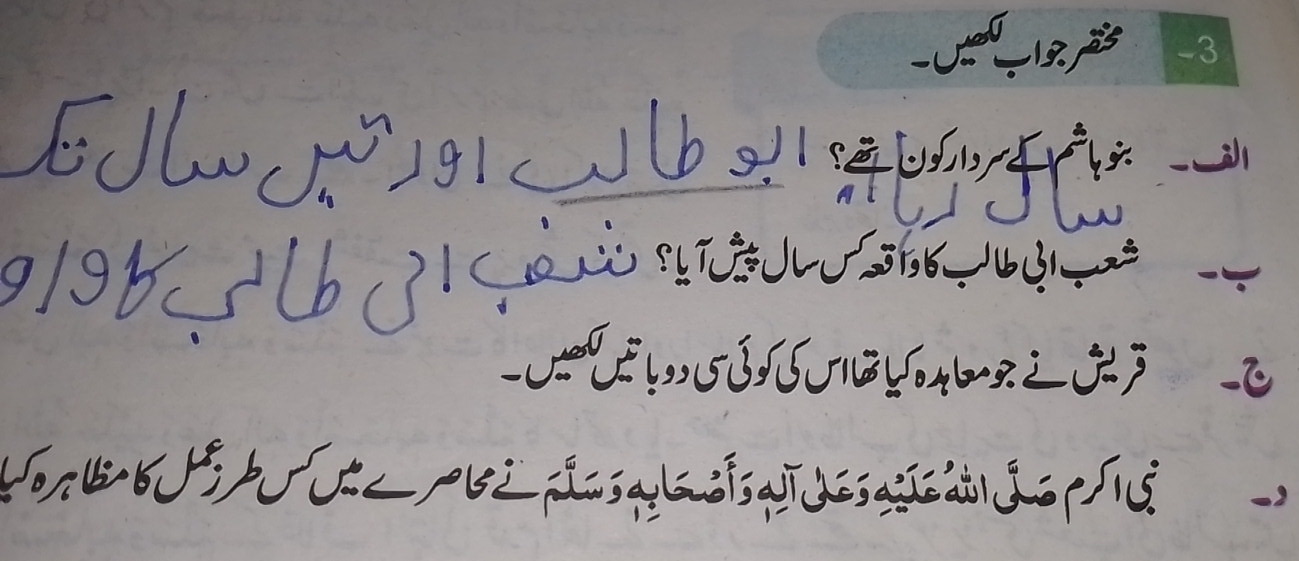 3- مختصر جواب لکھیں۔
الف۔ بنو ہاشم کے سردار کون تھے؟ ابو طالب اور تیں سال تک
سال رہا
ب۔ شعب ابی طالب کا واقعہ کس سال پیش آیا؟ شعب ابی طالب کا
ج۔ قریش نے جو معاہدہ کیا تھا اس کی کوئی سی دو باتیں لکھیں۔
د۔ نبی اکرم صَلَّی اللہُ عَلَیْہِ وَعَلٰی آلِہٖ وَأَصْحَابِہٖ وَسَلَّمَ نے محاصرے میں کس طرز عمل کا مظاہرہ کیا